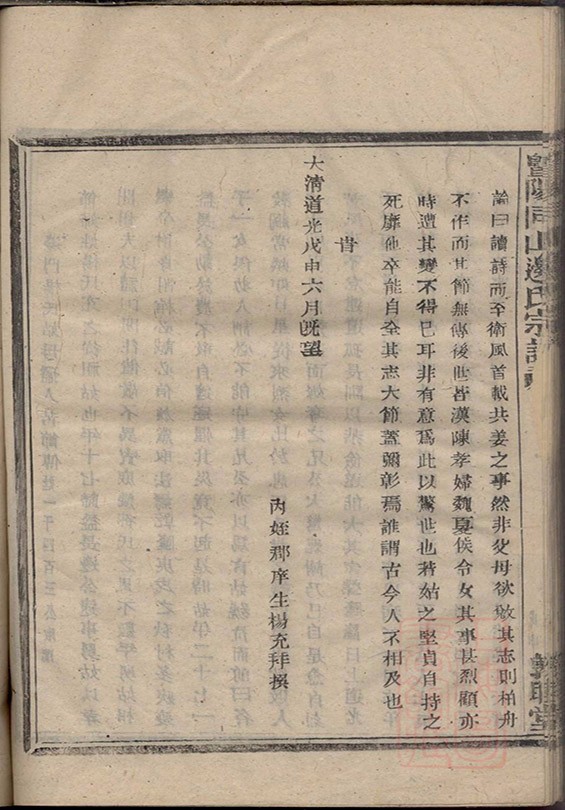 暨陽同山邊氏宗譜
論曰讀詩而至衛風首載共姜之事然非父母欲敓其志則柏舟
不作而其節無傳後世皆漢陳孝婦魏夏侯令女其事甚烈顧亦
時遭其變不得已耳非有意爲此以驚世也若姑之堅貞自持之
死靡他卒能自全其志大節蓋彌彰焉誰謂古今人不相及也
旹
大清道光戊申六月旣望
內姪郡庠生楊充拜撰